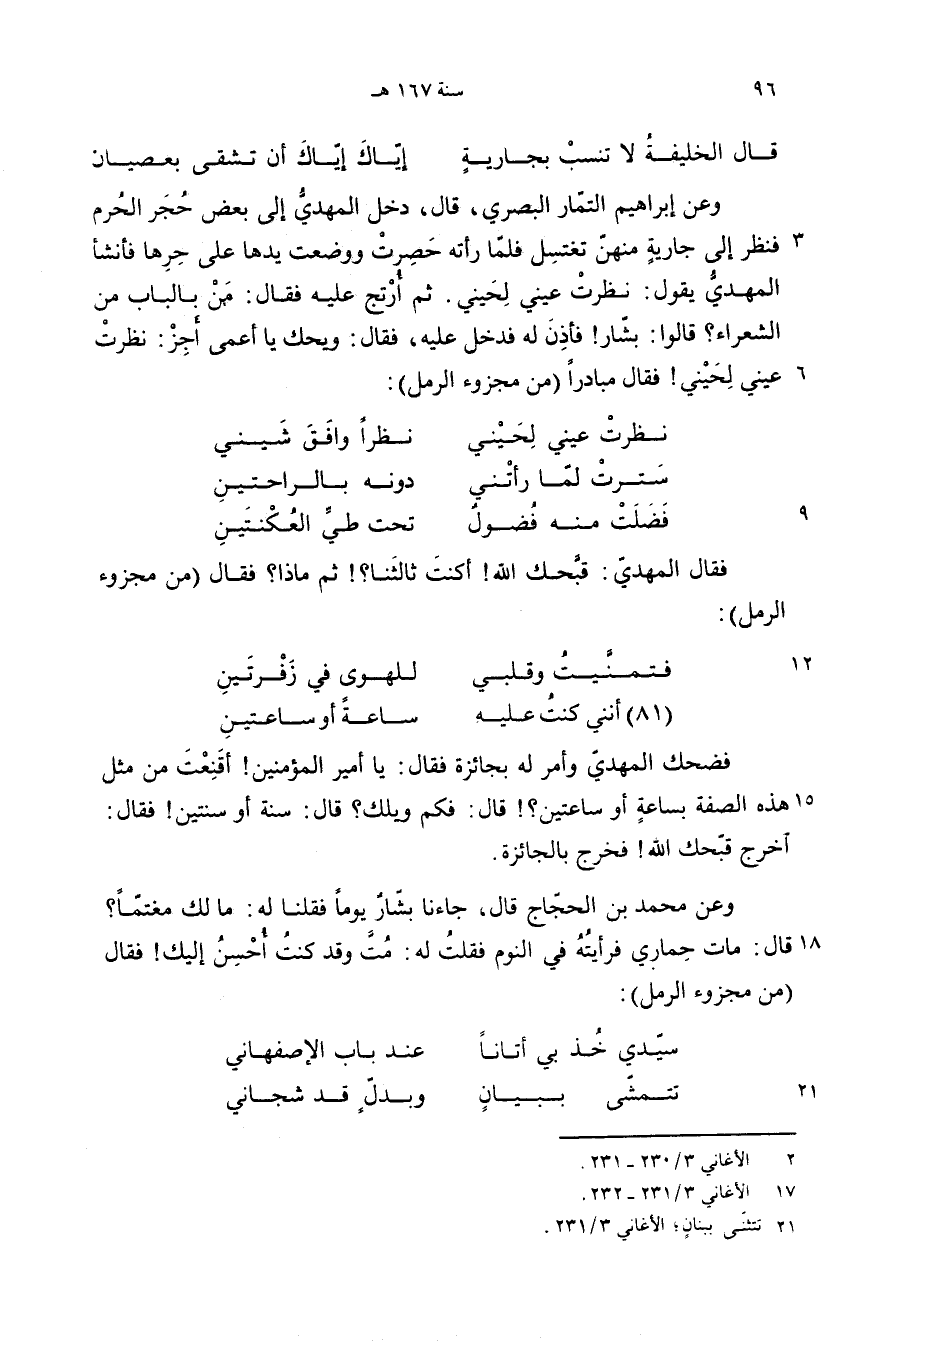 ٩٦ سنة ١٦٧ هـ
قال الخليفةُ لا تنسبْ بجاريةٍ إيّاكَ إيّاكَ أن تشقى بعصيان
وعن إبراهيم التمّار البصري، قال، دخل المهديُّ إلى بعض حُجَر الحُرم
٣ فنظر إلى جاريةٍ منهنّ تغتسل فلمّا رأته حَصِرتْ ووضعت يدها على حِرِها فأنشأ
المهديُّ يقول: نظرتْ عيني لِحَيني. ثم أُرْتج عليه فقال: مَنْ بالباب من
الشعراء؟ قالوا: بشّار! فأذِنَ له فدخل عليه، فقال: ويحك يا أعمى أَجِزْ: نظرتْ
٦ عيني لِحَيْني! فقال مبادراً (من مجزوء الرمل):
نظرتْ عيني لِحَيْني نظراً وافَقَ شَيني
سَترتْ لمّا رأتْني دونه بالراحتينِ
٩ فَضَلَتْ منه فُضولٌ تحت طيِّ العُكْنَتَينِ
فقال المهديّ: قبَّحك الله! أكنتَ ثالثَنا؟! ثم ماذا؟ فقال (من مجزوء
الرمل):
١٢ فتمنَّيتُ وقلبي للهوى في زَفْرتَينِ
(٨١) أنني كنتُ عليه ساعةً أو ساعتينِ
فضحك المهديّ وأمر له بجائزة فقال: يا أمير المؤمنين! أقَنِعْتَ من مثل
١٥ هذه الصفة بساعةٍ أو ساعتين؟! قال: فكم ويلك؟ قال: سنة أو سنتين! فقال:
آخرج قبّحك الله! فخرج بالجائزة.
وعن محمد بن الحجّاج قال، جاءنا بشّارٌ يوماً فقلنا له: ما لك مغتمّاً؟
١٨ قال: مات حماري فرأيتُهُ في النوم فقلتُ له: مُتَّ وقد كنتُ أُحْسِنُ إليك! فقال
(من مجزوء الرمل):
سيّدي خُذ بي أتاناً عند باب الإصفهاني
٢١ تتمشّى ببيانٍ وبدلٍّ قد شجاني
٢ الأغاني ٣/ ٢٣٠ ـ ٢٣١.
١٧ الأغاني ٣/ ٢٣١ ـ ٢٣٢.
٢١ تتثنّى ببنانٍ؛ الأغاني ٣/ ٢٣١.